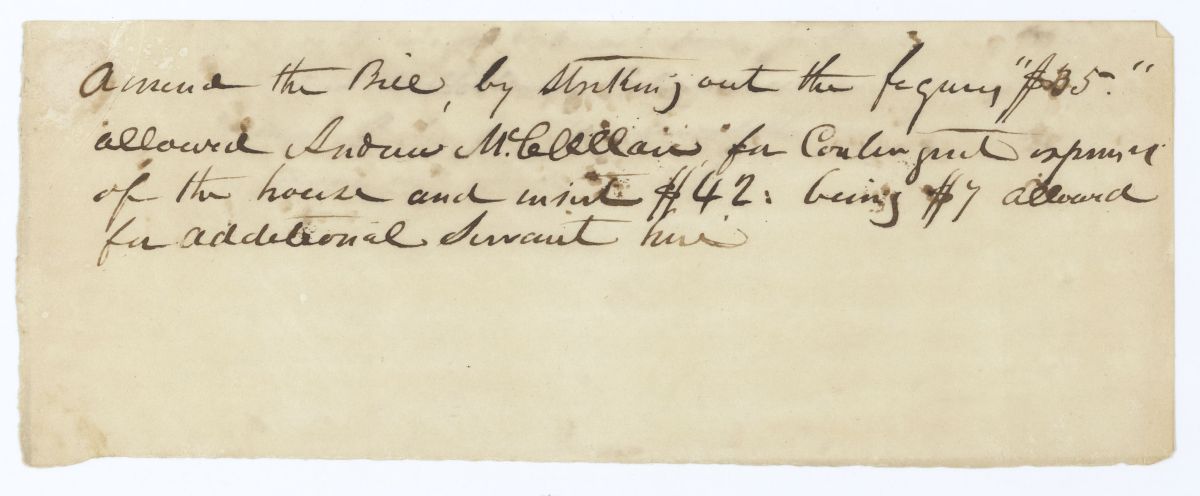 Amend the Bill, by striking out the figures "$35."
allowed Andrew McClellan, for Contingent expenses
of the house and insert $42: being $7 allowed
for additional Servant hire